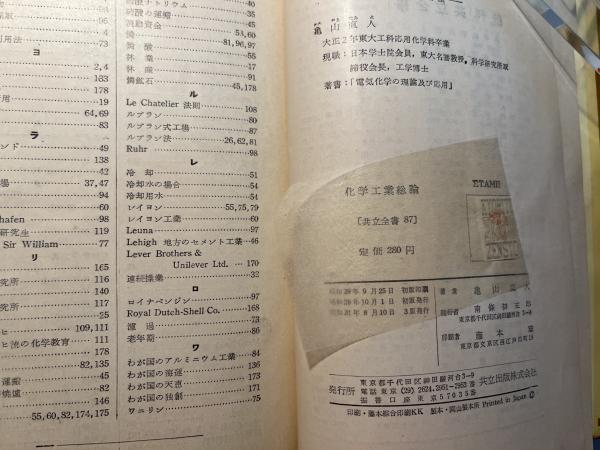 ナトリウム
硫酸の運蠟
流動資金 53,60
燐 81,96,97
燐酸 55
林業 17
林産 91
燐鉱石 45,178
ル
Le Chatelier 法則 108
ルブラン 80
ルブラン式工場 87
ルブラン法 26,62,81
Ruhr 98
レ
冷却 51
冷却水の場合 54
冷却用水 54
レイヨン 55,75,79
レイヨン工業 60
Leuna 97
Lehigh 地方のセメント工業 46
Lever Brothers &
Unilever Ltd. 170
連続操業 32
ロ
ロイナベンジン 97
Royal Dutch-Shell Co. 168
濾過 73
老年期 86
ワ
わが国のアルミニウム工業 84
わが国の溶運 135
わが国の天恵 171
わが国の独創 171
ワニリン 75
用法 73
ヨ
2,4
178
用 19
64,69
83
ラ
ンド 49
138
42
場 37,47
94
60
hafen 98
研究生 119
Sir William 77
リ
165
究所 116
140
究所 117
24
ヒ 109,111
ヒ流の化学教育 111
178
82,135
運搬 45
焙焼炉 86
55,60,82,174,175
亀山直人
大正2年東大工科応用化学科卒業
現職：日本学士院会員，東大名誉教授，科学研究所取
締役会長，工学博士
著書：「電気化学の理論及び応用」
化学工業総論
［共立全書 87］
定価 280円
ETABLI
昭和29年9月25日 初版印刷
昭和29年10月1日 初版発行
昭和31年8月10日 3版発行
著者 亀山直人
発行者 南條初五郎
東京都千代田区神田駿河台3~9
印刷者 藤本
東京都文京区西江戸川町19
発行所 東京都千代田区神田駿河台3~9
電話 東京(29) 2624,2951-2953
振替口座東京57035番
共立出版株式会社
印刷・藤本綜合印刷KK 製本・岡山製本所 Printed in Japan